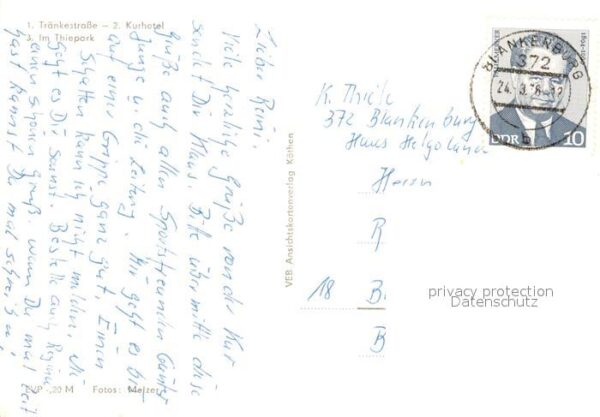 1. Tränkestraße – 2. Kurhotel
3. Im Thiepark
Lieber Reini,
Viele herzliche Grüße von der Kur
sendet Dir Klaus. Bitte übermittle diese
Grüße auch allen Sportfreunden
Junge u. die Leitung. Mir geht es bis
auf eine Grippe ganz gut. Einen
Schatten kann ich nicht
geht es Dir sonst. Bestelle auch Regina
einen schönen Gruß. Wenn Du mal Zeit
hast kannst Du mal schreiben,
EVP -,20 M Fotos: Melzer
VEB Ansichtskartenverlag Köthen
BLANKENBURG
372
24.-3.
b
DDR 10
K. Thiele
372 Blankenburg
Haus Helgoland
Herrn
R
18 B
B
privacy protection
Datenschutz